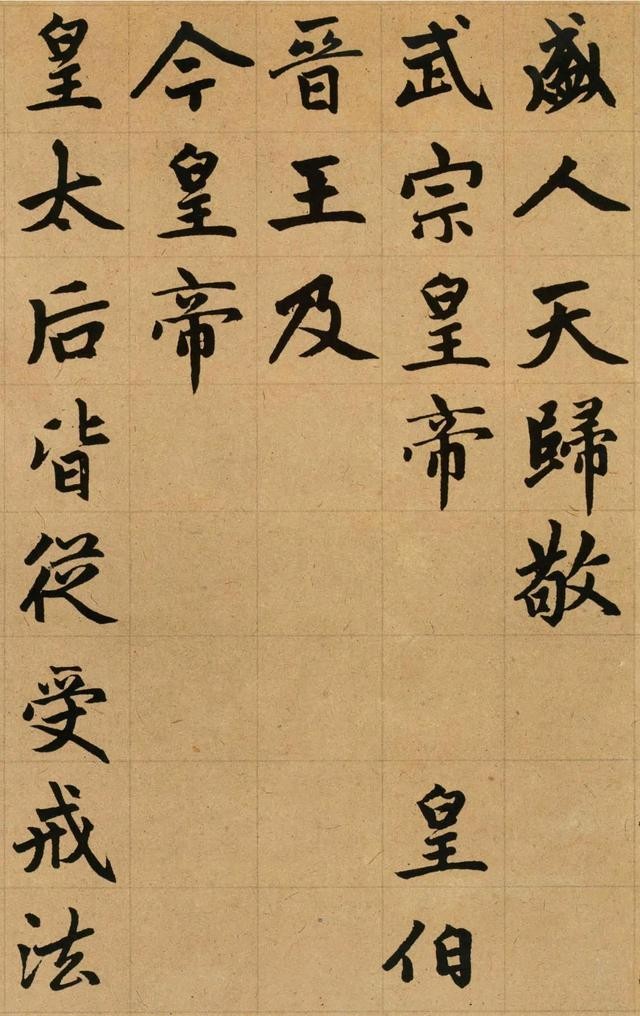 盛人天歸敬
武宗皇帝 皇伯
晉王及
今皇帝
皇太后皆從受戒法